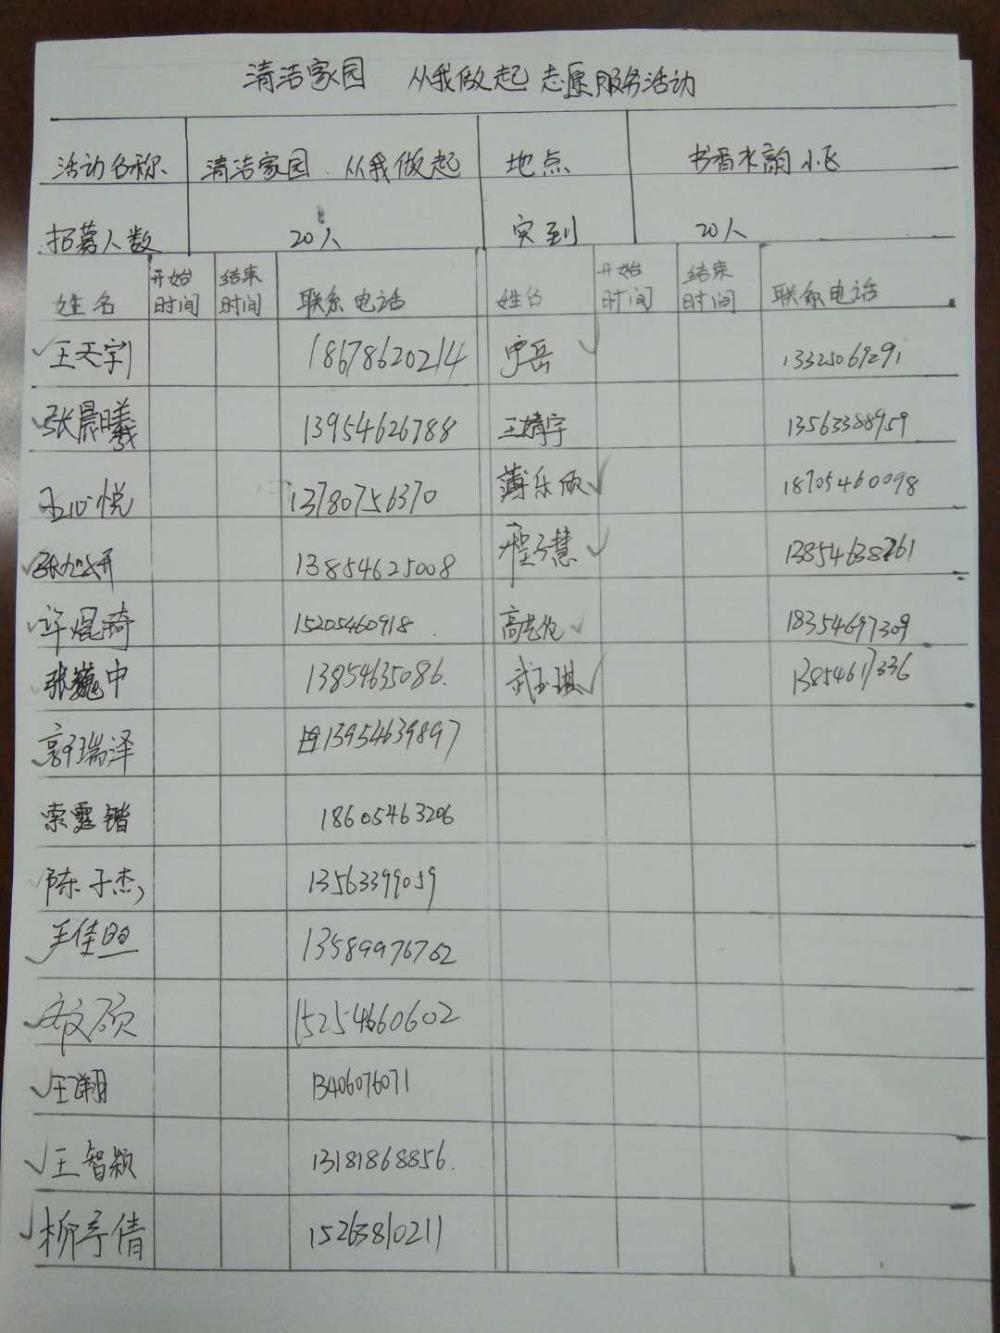 清洁家园 从我做起 志愿服务活动
活动名称 清洁家园.从我做起 地点 书香水韵小飞
招募人数 20人 实到 20人
姓名 开始时间 结束时间 联系电话 姓名 开始时间 结束时间 联系电话
王天宇 18678620214 宁岳 13325069291
张晨曦 13954626788 王婧宇 13563388959
王心悦 13780756370 薄乐欣 18705460098
13854625008 程子慧 13854638261
许焜琦 15205460918. 高艺伦 18354697309
张巍中 13854635086. 武玉琪 13854617336
郭瑞泽 13954639897
索露锴 18605463206
陈子杰 13563399059
王佳昀 13589976762
文硕 15254660602
王翔 13406076071
王智颖 13181868856.
柳亭倩 15263810211